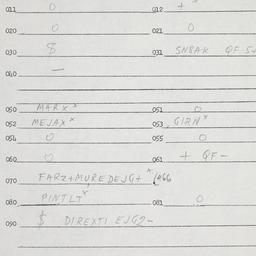 011 O 012 +
020 O 021 O
030 $ 031 SNBAK QF 5+
040 —
050 MARX x 051 O
052 MEJAX x 053 GIRN x
054 O 055 O
060 O 061 + QF -
070 FARZ+MURE DEJG+ x
080 PINTLT x 081 O
090 $ DIREXTI EJG2-